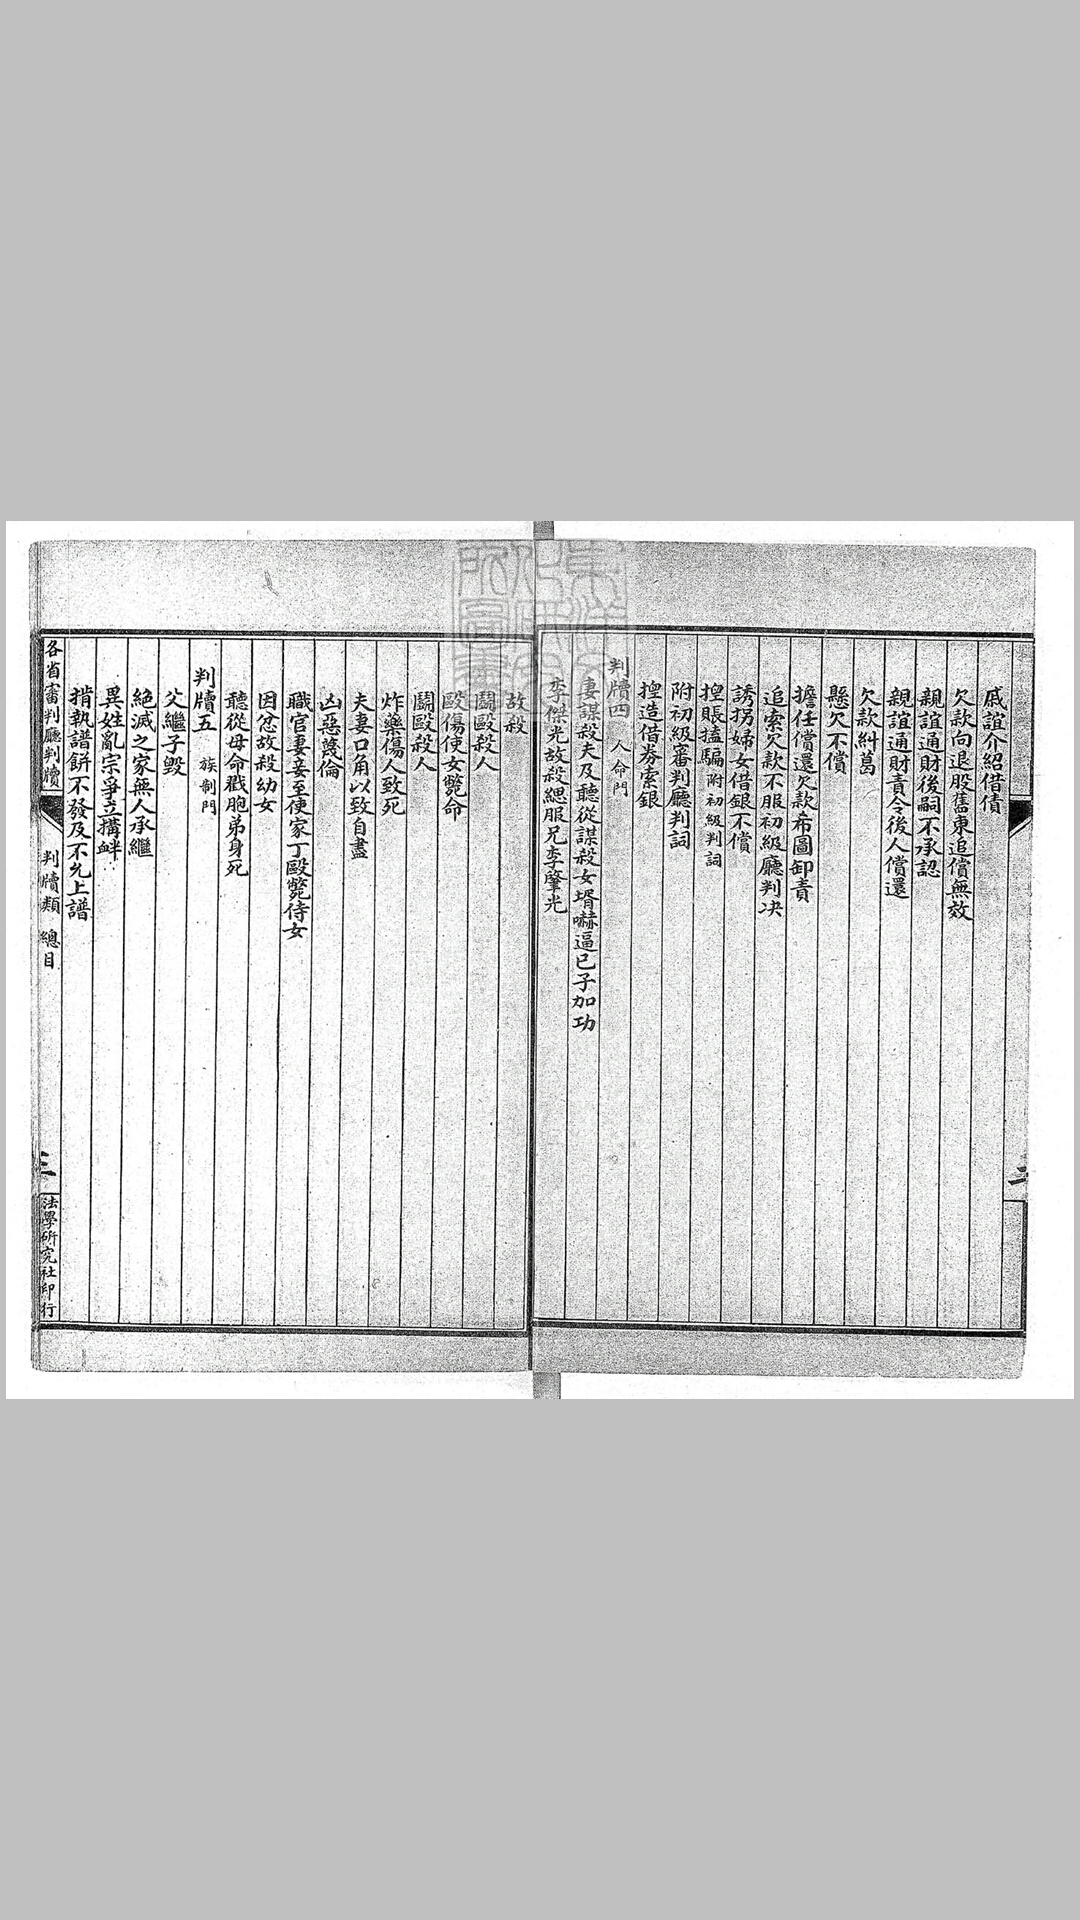 戚誼介紹借債
欠款向退股舊東追償無效
親誼通財後嗣不承認
親誼通財責令後人償還
欠款糾葛
懸欠不償
擔任償還欠款希圖卸責
追索欠款不服初級廳判决
誘拐婦女借銀不償
揑賬搕騙 附初級判詞
附初級審判廳判詞
揑造借券索銀
判牘四 人命門
妻謀殺夫及聽從謀殺女壻嚇逼已子加功
李傑光故殺緦服兄李肇光
二
故殺
鬭毆殺人
毆傷使女斃命
鬭毆殺人
炸藥傷人致死
夫妻口角以致自盡
凶惡蔑倫
職官妻妾至使家丁毆斃侍女
因忿故殺幼女
聽從母命戳胞弟身死
判牘五 族制門
父繼子毁
絕滅之家無人承繼
異姓亂宗爭立搆衅
掯執譜餅不發及不允上譜
各省審判廳判牘
判牘類 總目
三
法學研究社印行